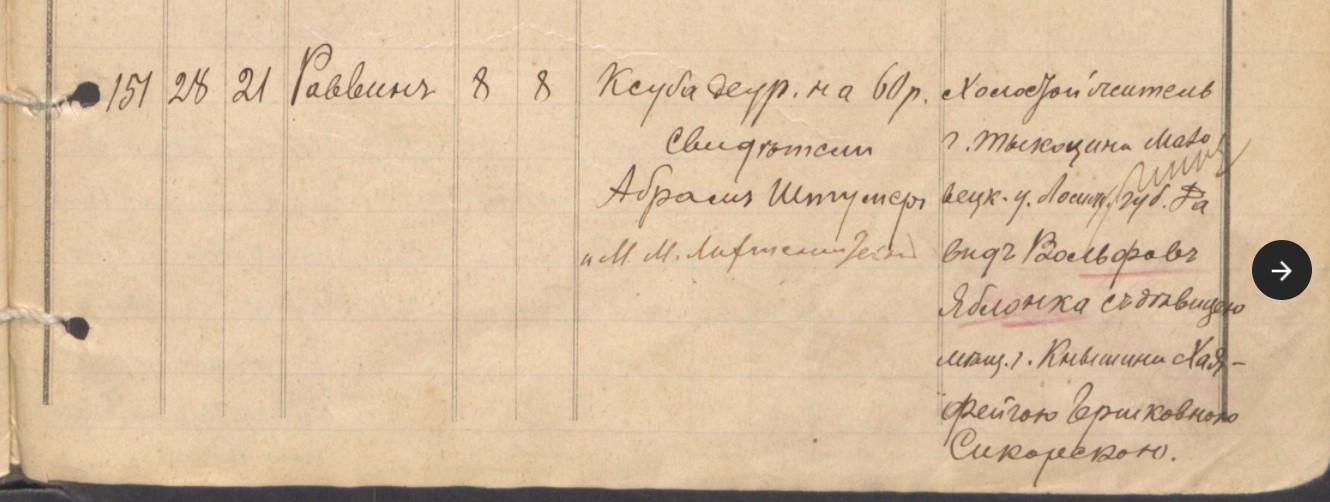 151 28 21 Раввинъ 8 8 Ксуба деур. на 60 р.
Свидѣтели
Абрамъ Штумеръ
и М. М.
Холостой житель
г. Тыкоцина Мазо
вецк. у. Ломж. губ. Да
видъ Вольфовъ
Яблонка съ дѣвицею
мѣщ. г. Кнышина Хая-
Фейгою Гершковною
Сикорскою.